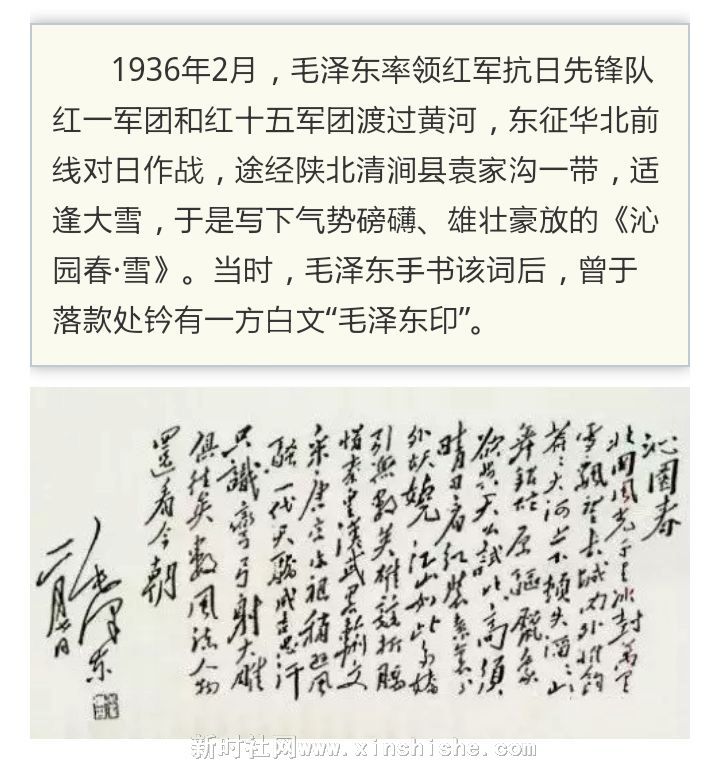 1936年2月，毛泽东率领红军抗日先锋队
红一军团和红十五军团渡过黄河，东征华北前
线对日作战，途经陕北清涧县袁家沟一带，适
逢大雪，于是写下气势磅礴、雄壮豪放的《沁
园春·雪》。当时，毛泽东手书该词后，曾于
落款处钤有一方白文“毛泽东印”。
沁園春
北国風光千里冰封萬里
雪飄望長城内外惟餘
莽々大河上下頓失滔々山
舞銀蛇原驅臘象
欲與天公試比高須
晴日看紅裝素裹分
外妖嬈江山如此多嬌
引無数英雄競折腰
惜秦皇漢武略輸文
采唐宗宋祖稍遜風
騷一代天驕成吉思汗
只識彎弓射大雕
俱往矣數風流人物
還看今朝
毛澤東
新时社网www.xinshishe.com